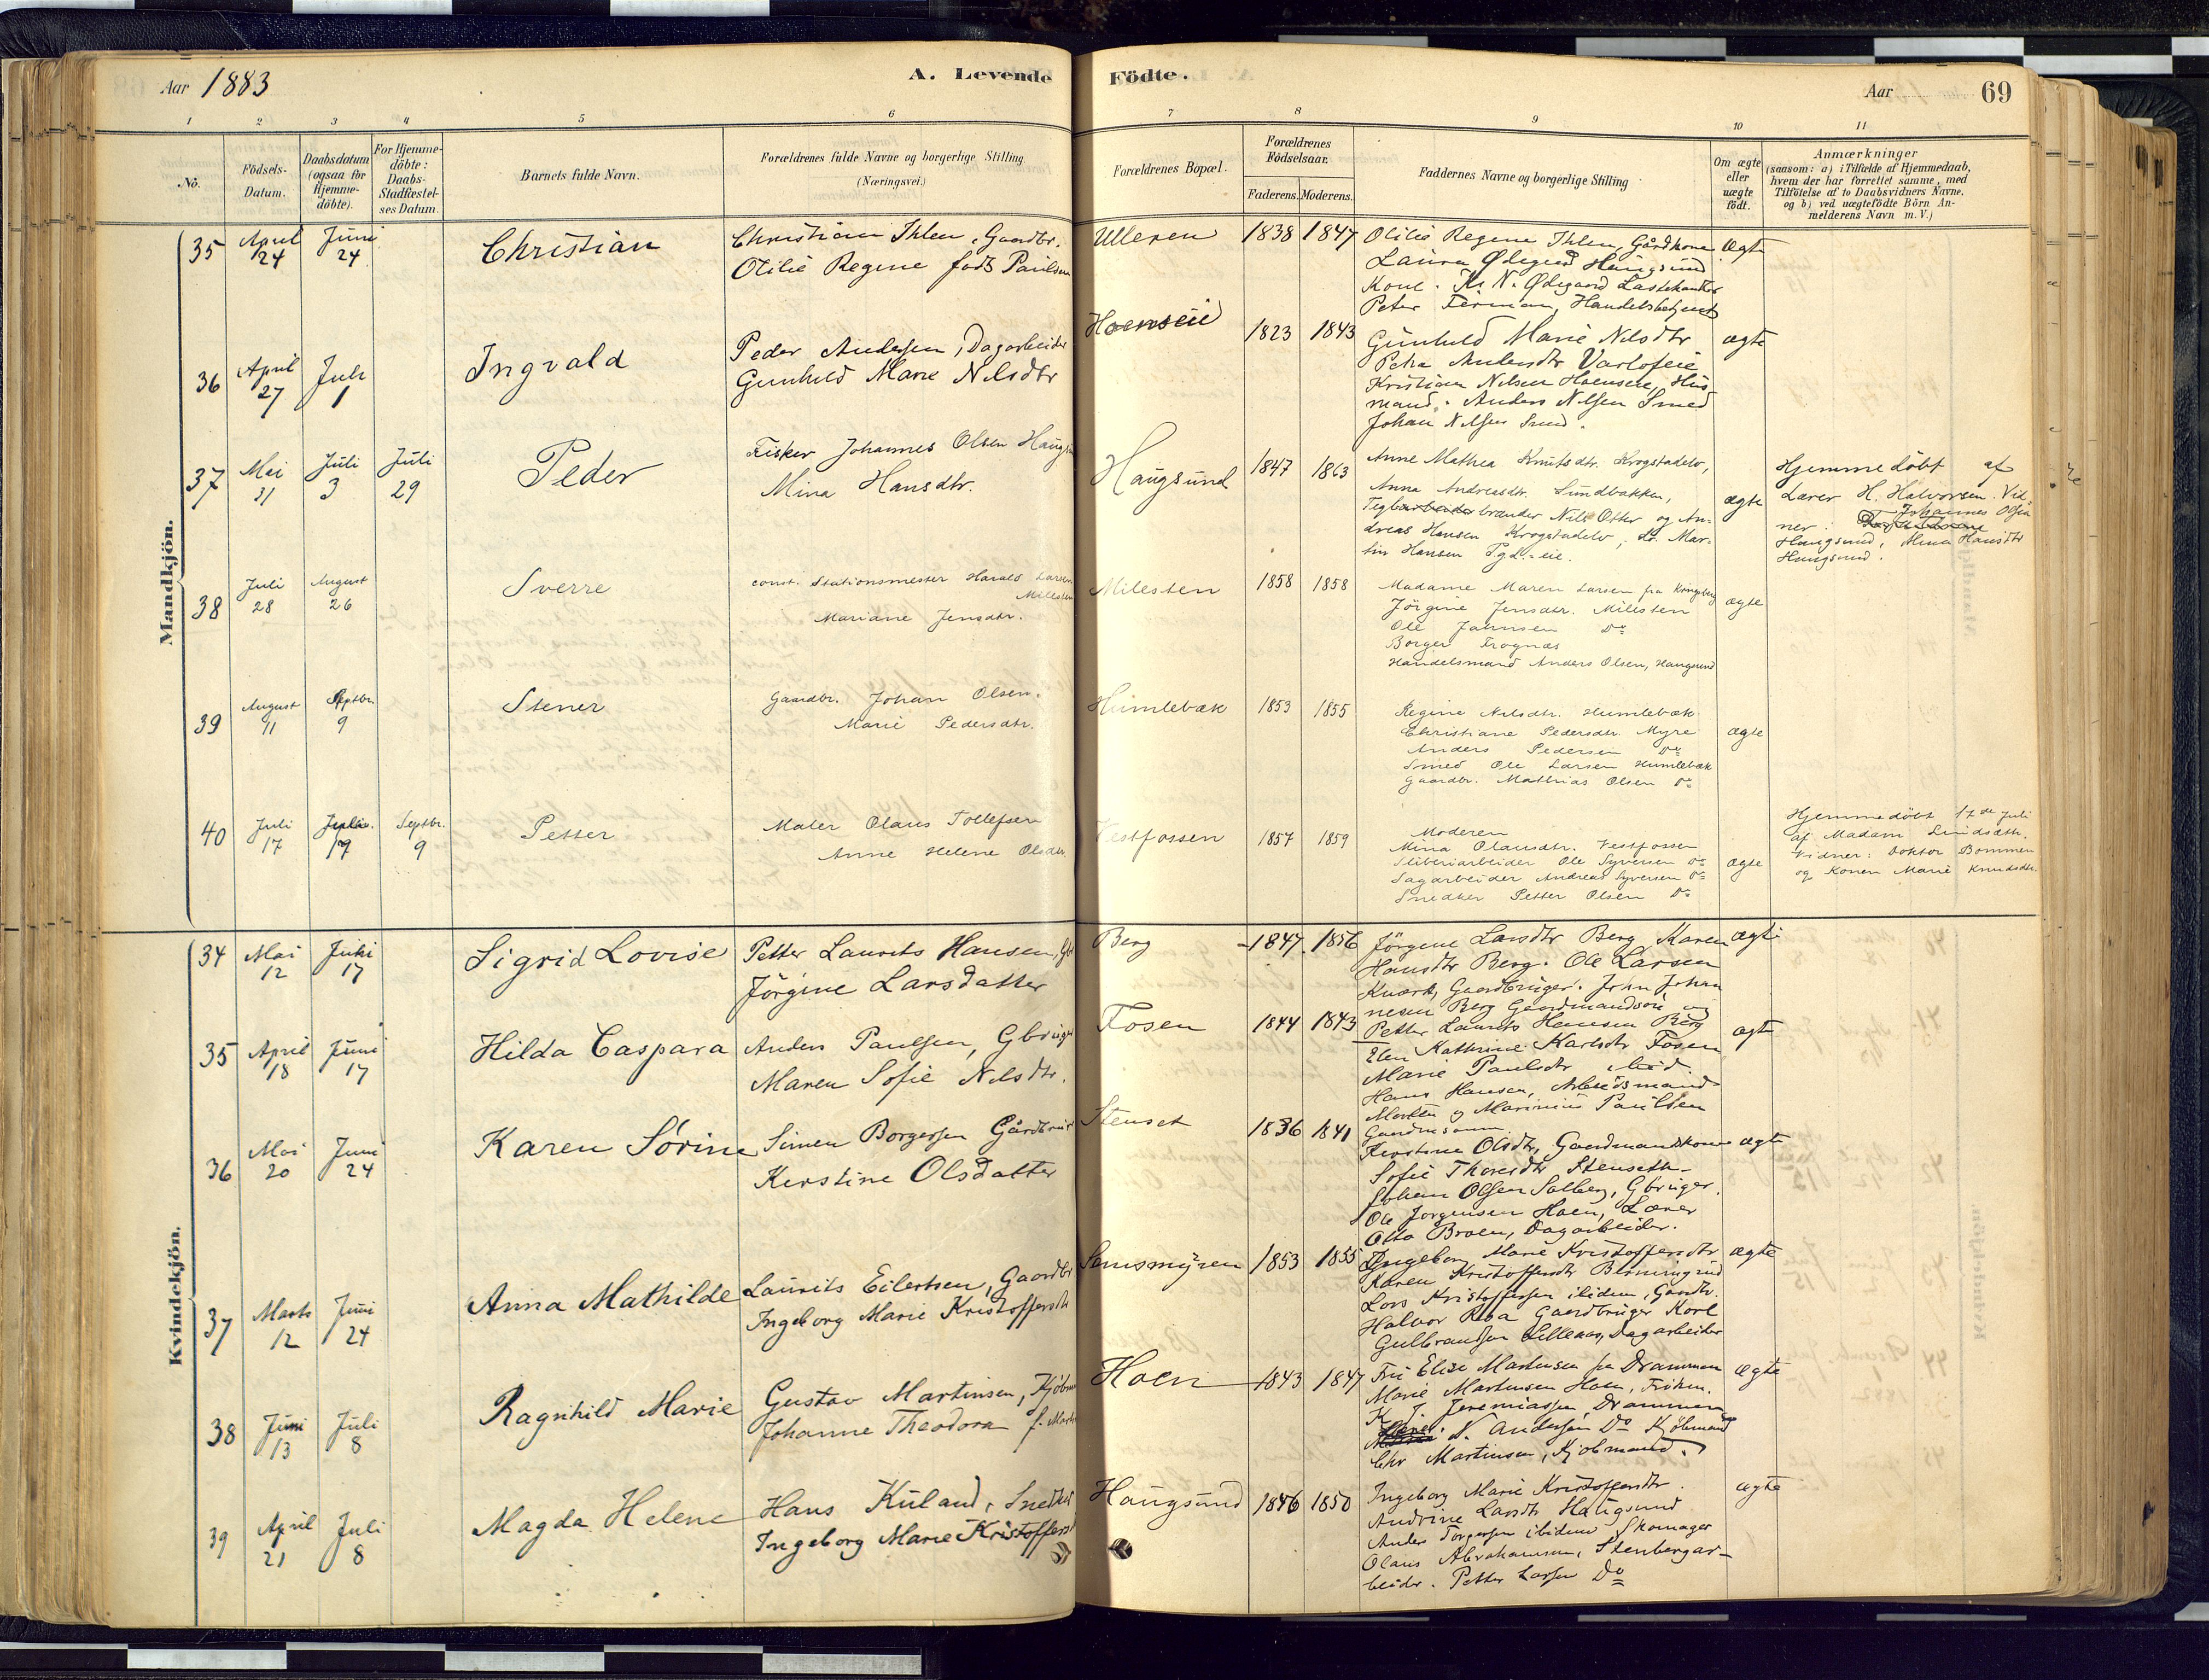 Aar 1883
A. Levende Födte.
Aar 69
1 2 3 4 5 6 7 8 9 10 11
No.
Födsels-Datum.
Daabsdatum (ogsaa for Hjemme-döbte).
For Hjemme-döbte: Daabs-Stadfestel-ses Datum.
Barnets fulde Navn.
Forældrenes fulde Navne og borgerlige Stilling (Næringsvei.)
Forældrenes Bopæl.
Forældrenes Födselsaar.
Faderens. Moderens.
Faddernes Navne og borgerlige Stilling
Om ægte eller uægte födt.
Anmærkninger
(saasom: a) i Tilfælde af Hjemmedaab,
hvem der har forrettet samme, med
Tilföielse af to Daabsvidners Navne.
og b) ved uægtefödte Börn An-
melderens Navn m. V.)
Mandkjön.
35 April 24 Juni 24 Christian
Christian Ihlen, Gaardbr.
Otilie Regine född Paulsen
Ulleren 1838 1847
Otilie Regine Ihlen, Gårdkone
Laura Ødegaard Haugsund
Kone. Kr. N. Ødegaard
Peter Handelsbetjent
ægte
36 April 27 Juli 1 Ingvald
Peder Andersen, Dagarbeider
Gunhild Marie Nilsdtr
Hoenseie 1823 1843
Gunhild Marie Nilsdtr
Petra Andersdtr
Kristian Nilsen Hoenseie, Hus
mand. Anders Nilsen Smed
Johan Nilsen Smed.
ægte
37 Mai 31 Juli 3 Juli 29 Peder
Fisker Johannes Olsen
Mina Hansdtr.
Haugsund 1847 1863
Anne Mathea Knutsdtr. Krogstadelv,
Anna Andreasdtr. Sundbakken,
brænder Nils Otter og An-
dreas Hansen Krogstadelv, Mar-
tin Hansen
ægte
Hjemmedöbt af
Lærer H. Halvorsen. Vid-
ner: Johannes Olsen
Haugsund, Mina Hansdtr
Haugsund.
38 Juli 28 August 26 Sverre
const. Stationsmester Harald Larsen
Milesten
Mariane Jensdtr.
Milesten 1858 1858
Madame Maren Larsen fra Kongsberg
Jörgine Jensdtr. Milesten
Ole Jahnsen Do
Borger Frognæs
Handelsmand Anders Olsen, Haugsund
ægte
39 August 11 Septbr. 9 Stener
Gaardbr. Johan Olsen.
Marie Pedersdtr.
Humlebæk 1853 1855
Regine Nilsdtr. Humlebæk
Christiane Pedersdtr. Myre
Anders Pedersen Do
Smed Ole Larsen Humlebæk
Gaardbr. Mathias Olsen Do
ægte
40 Juli 17 Juli 17 Septbr. 9 Petter
Maler Olaus Tollefsen
Anne Helene Olsdtr.
Vestfossen 1857 1859
Moderen
Mina Olausdtr. Vestfossen
Sliberiarbeider Ole Syversen Do
Sagarbeider Andreas Syversen Do
Snedker Petter Olsen Do
ægte
Hjemmedöbt 17de Juli
af Madam Lindsæth.
Vidner: Doktor Bommen
og Konen Marie Knudsdtr.
Kvindekjön.
34 Mai 12 Juni 17 Sigrid Lovise
Petter Laurits Hansen, Gbr
Jörgine Larsdatter
Berg 1847. 1856
Jörgene Larsdtr Berg, Karen
Hansdtr Berg. Ole Larsen
Gaardbruger. John Johan
nesen Berg Gaardmandsön og
Petter Laurits Hansen Berg
ægte
35 April 18 Juni 17 Hilda Caspara
Anders Paulsen, Gbruger
Maren Sofie Nilsdtr.
Fosen 1844 1843
Elen Kathrine Karlsdtr Fosen
Marie Paulsdtr ibid.
Hans Hansen, Arbeidsmand
Morten og Marinius Paulsen
ægte
36 Mai 20 Juni 24 Karen Sörine
Simen Borgersen Gårdbruger
Kerstine Olsdatter
Stenset 1836 1841
Kerstine Olsdtr, Gaardmandskone
Sofie Thoresdtr Stenseth
Johan Olsen Solberg, Gbruger.
Ole Jorgensen Hoen, Lærer
Otto Braen, Dagarbeider.
ægte
37 Marts 12 Juni 24 Anna Mathilde
Laurits Eilertsen, Gaardbr
Ingeborg Marie Kristoffersdtr
Sansmyren 1853 1855
Ingeborg Marie Kristoffersdtr
Karen Kristoffersdtr
Lars Kristoffersen ibidem, Gaardbr.
Halvor Gaardbruger Karl
Gulbrandsen Lilleaas, Dagarbeider
ægte
38 Juni 13 Juli 8 Ragnhild Marie
Gustav Martinsen, Kjöbm
Johanne Theodora f. Mart
Hoen 1843 1847
Fru Elise Martinsen fra Drammen
Marie Martinsen Hoen, Fröken.
K. J. Jeremiassen, Drammen
N. Andersen Do Kjöbmand
Chr Martinsen, Kjöbmand.
ægte
39 April 21 Juli 8 Magda Helene
Hans Kuland, Snedker
Ingeborg Marie Kristoffersd
Haugsund 1846 1850
Ingeborg Marie Kristoffersdtr.
Andrine Larsdtr Haugsund
Anders Torgersen ibidem Skomager
Olaus Abrahamsen, Stenbergar-
beider. Petter Larsen Do
ægte